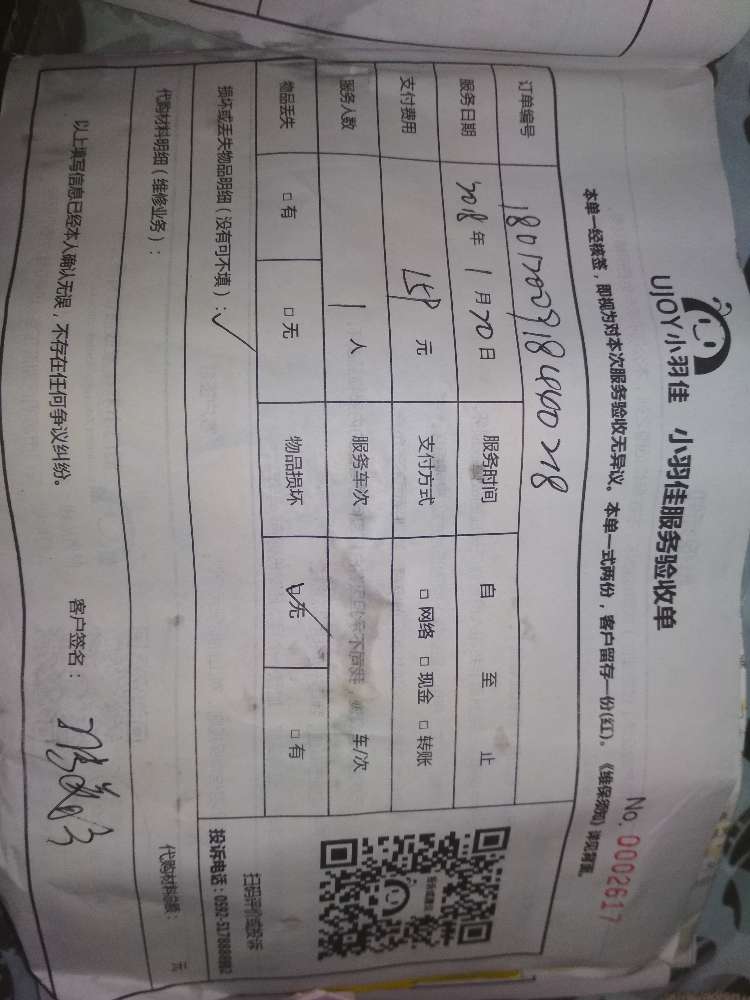 UJOY小羽佳 小羽佳服务验收单
No. 00002617
本单一经核签，即视为对本次服务验收无异议。本单一式两份，客户留存一份(红)。《维保须知》详见背面。
订单编号
服务日期 2018 年 1 月 20 日 服务时间 自 至 止
支付费用 元 支付方式 □ 网络 □ 现金 □ 转账
服务人数 1 人 服务车次 车/次
物品丢失 □ 有 □ 无 物品损坏 □ 无 ✓ □ 有
损坏或丢失物品明细（没有可不填）：✓
代购材料明细（维修业务）： 代购材料总额： 元
以上填写信息已经本人确认无误，不存在任何争议纠纷。 客户签名：
扫码评价或投诉
投诉电话：0592-5178888转2